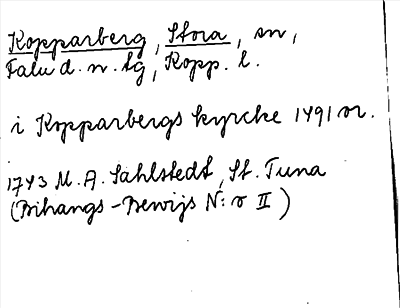 Kopparberg, Stora, sn,
Falu d. n. tg, Kopp. l.
i Kopparbergs kyrcke 1491 or.
1743 M. A. Sahlstedt, St. Tuna
(Bihangs-Bewijs N:o II)